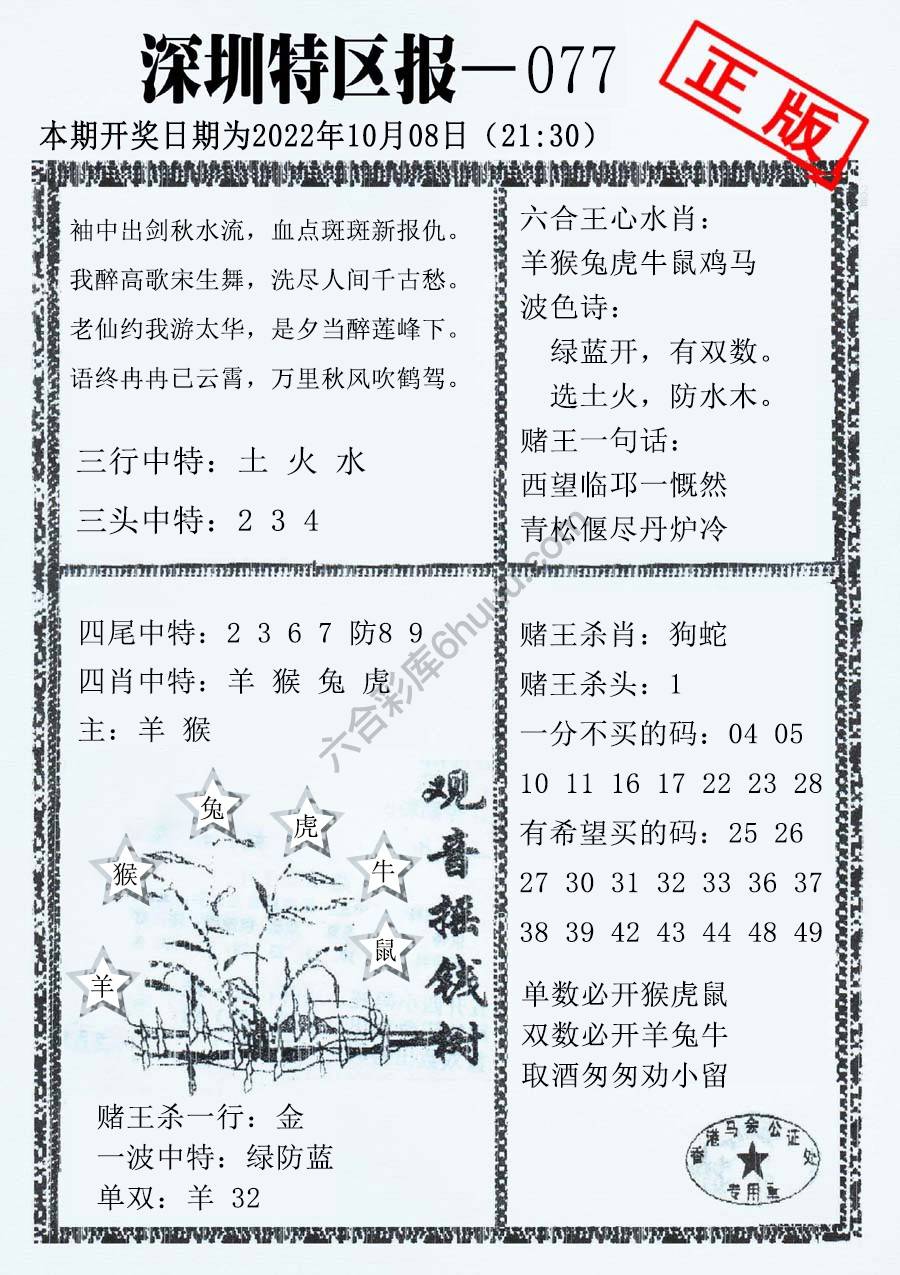 深圳特区报—077
正版
本期开奖日期为2022年10月08日（21:30）
袖中出剑秋水流，血点斑斑新报仇。
我醉高歌宋生舞，洗尽人间千古愁。
老仙约我游太华，是夕当醉莲峰下。
语终冉冉已云霄，万里秋风吹鹤驾。
三行中特：土 火 水
三头中特：2 3 4
六合王心水肖：
羊猴兔虎牛鼠鸡马
波色诗：
绿蓝开，有双数。
选土火，防水木。
赌王一句话：
西望临邛一慨然
青松偃尽丹炉冷
四尾中特：2 3 6 7 防8 9
四肖中特：羊 猴 兔 虎
主：羊 猴
兔
虎
猴
牛
鼠
羊
观音摇钱树
赌王杀一行：金
一波中特：绿防蓝
单双：羊 32
赌王杀肖：狗蛇
赌王杀头：1
一分不买的码：04 05
10 11 16 17 22 23 28
有希望买的码：25 26
27 30 31 32 33 36 37
38 39 42 43 44 48 49
单数必开猴虎鼠
双数必开羊兔牛
取酒匆匆劝小留
香港马会公证处
专用章
六合彩库6huuu.com